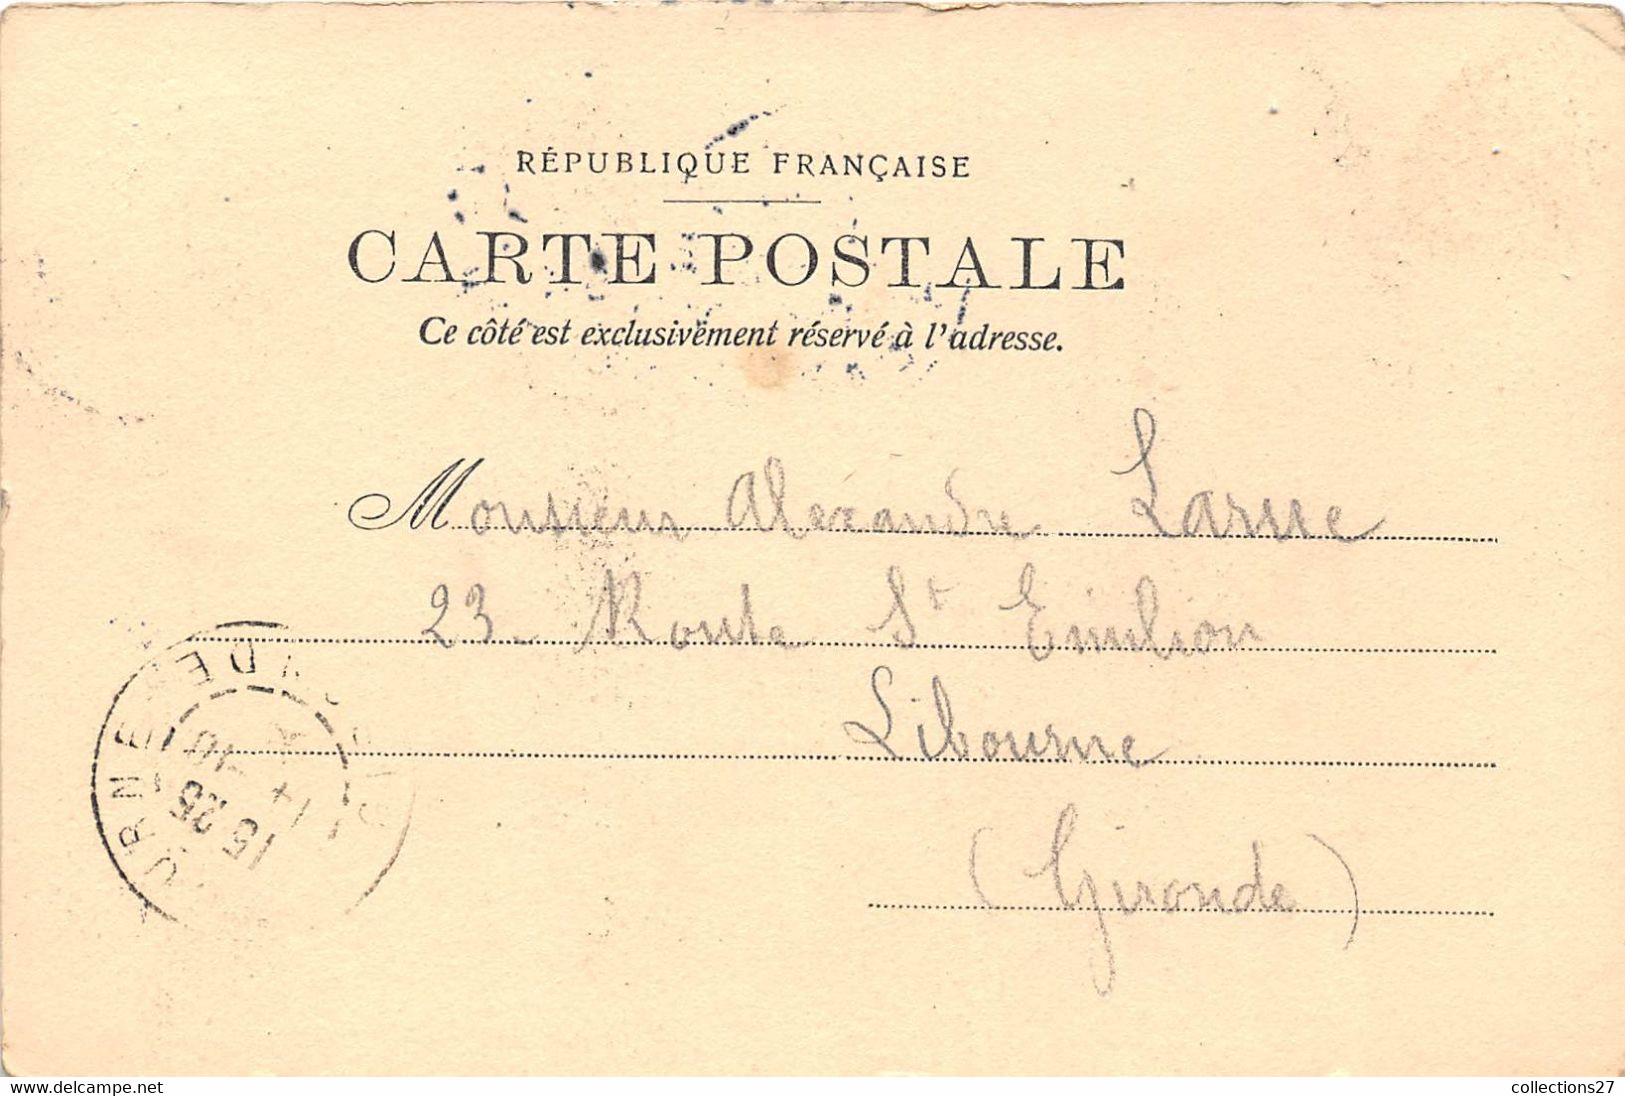 RÉPUBLIQUE FRANÇAISE
CARTE POSTALE
Ce côté est exclusivement réservé à l'adresse.
Monsieur Alexandre Larue
23 Route St Emilion
Libourne
(Gironde)
15 25
delcampe.net
collections27